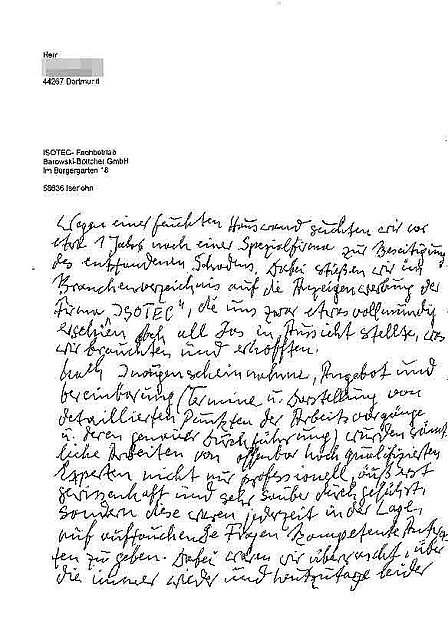 Herr
44267 Dortmund
ISOTEC- Fachbetrieb
Barowski-Böttcher GmbH
Im Bürgergarten 18
58636 Iserlohn
Wegen einer feuchten Hauswand suchten wir vor
etwa 1 Jahr nach einer Spezialfirma zur Beseitigung
des entstandenen Schadens. Dabei stießen wir im
Branchenverzeichnis auf die Anzeigenwerbung der
Firma „ISOTEC", die uns zwar etwas vollmundig
erschien, doch all das in Aussicht stellte, was
wir brauchten und erhofften.
Nach Inaugenscheinnahme, Angebot und
Vereinbarung (Termine u. Darstellung von
detaillierten Punkten der Arbeitsvorgänge
u. deren genauer Durchführung) wurden sämt-
liche Arbeiten von offenbar hoch qualifizierten
Experten nicht nur professionell, äußerst
gewissenhaft und sehr sauber durchgeführt,
sondern diese waren jederzeit in der Lage,
auf auftauchende Fragen kompetente Antwor-
ten zu geben. Dabei waren wir überrascht, über
die immer wieder und heutzutage leider